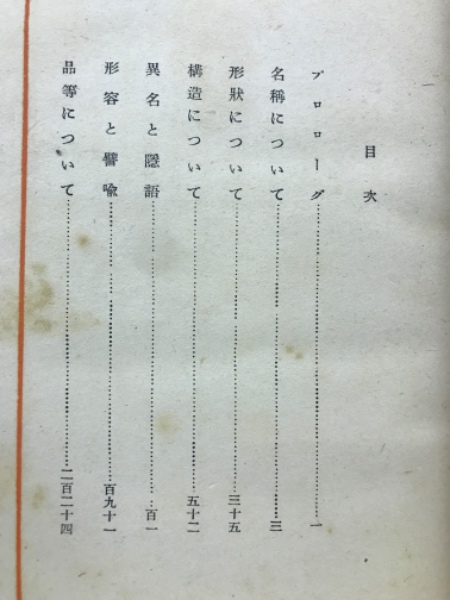 目次
プロローグ……………一
名稱について……………三
形狀について……………三十五
構造について……………五十二
異名と隱語……………百一
形容と譬喩……………百九十一
品等について……………二百二十四